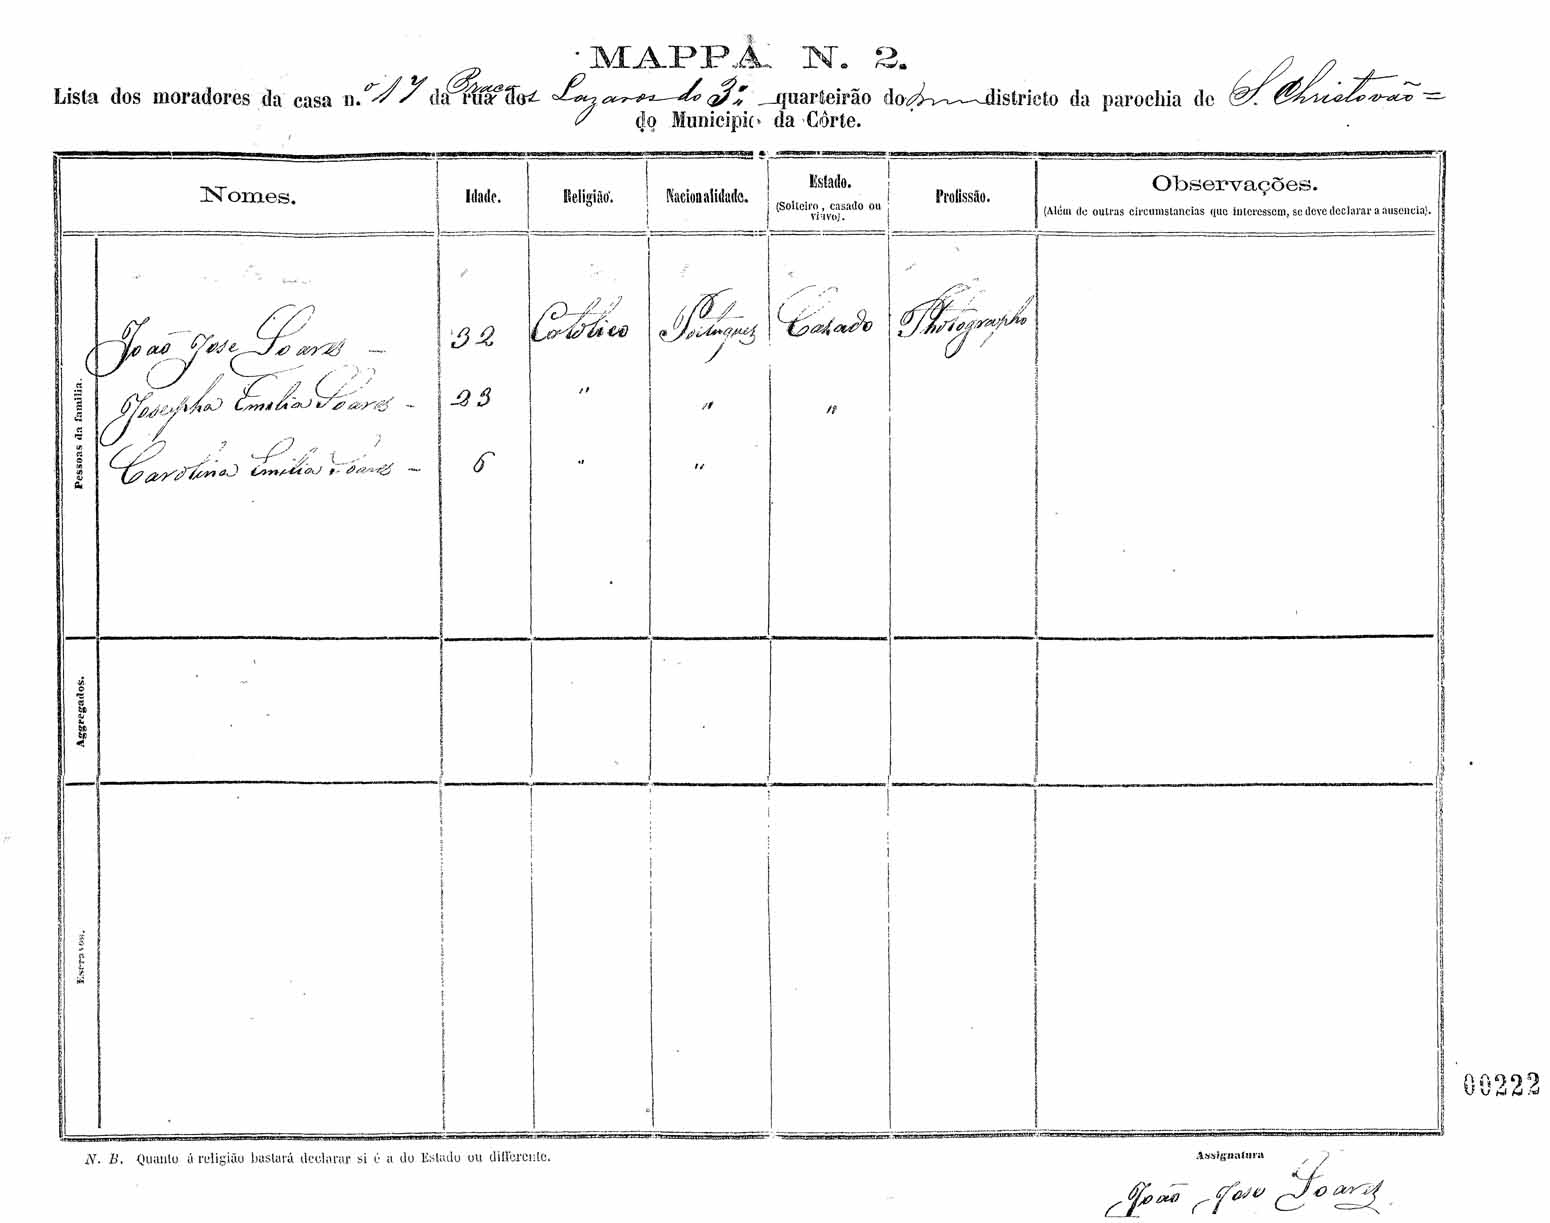 MAPPA N. 2.
Lista dos moradores da casa n.º 17 da rua Praça dos Lazaros do 3º quarteirão do districto da parochia de S. Christovão =
do Municipio da Côrte.
Nomes. Idade. Religião. Nacionalidade. Estado. (Solteiro, casado ou viuvo). Profissão. Observações. (Além de outras circumstancias que interessem, se deve declarar a ausencia).
Pessoas da familia.
João Jose Soares — 32 Catolico Portuguez Cazado Photographo
Josepha Emilia Soares - 23 " " "
Carolina Emilia Soares — 6 " "
Aggregados.
Escravos.
00222
N. B. Quanto á religião bastará declarar si é a do Estado ou differente.
Assignatura
João Jose Soares